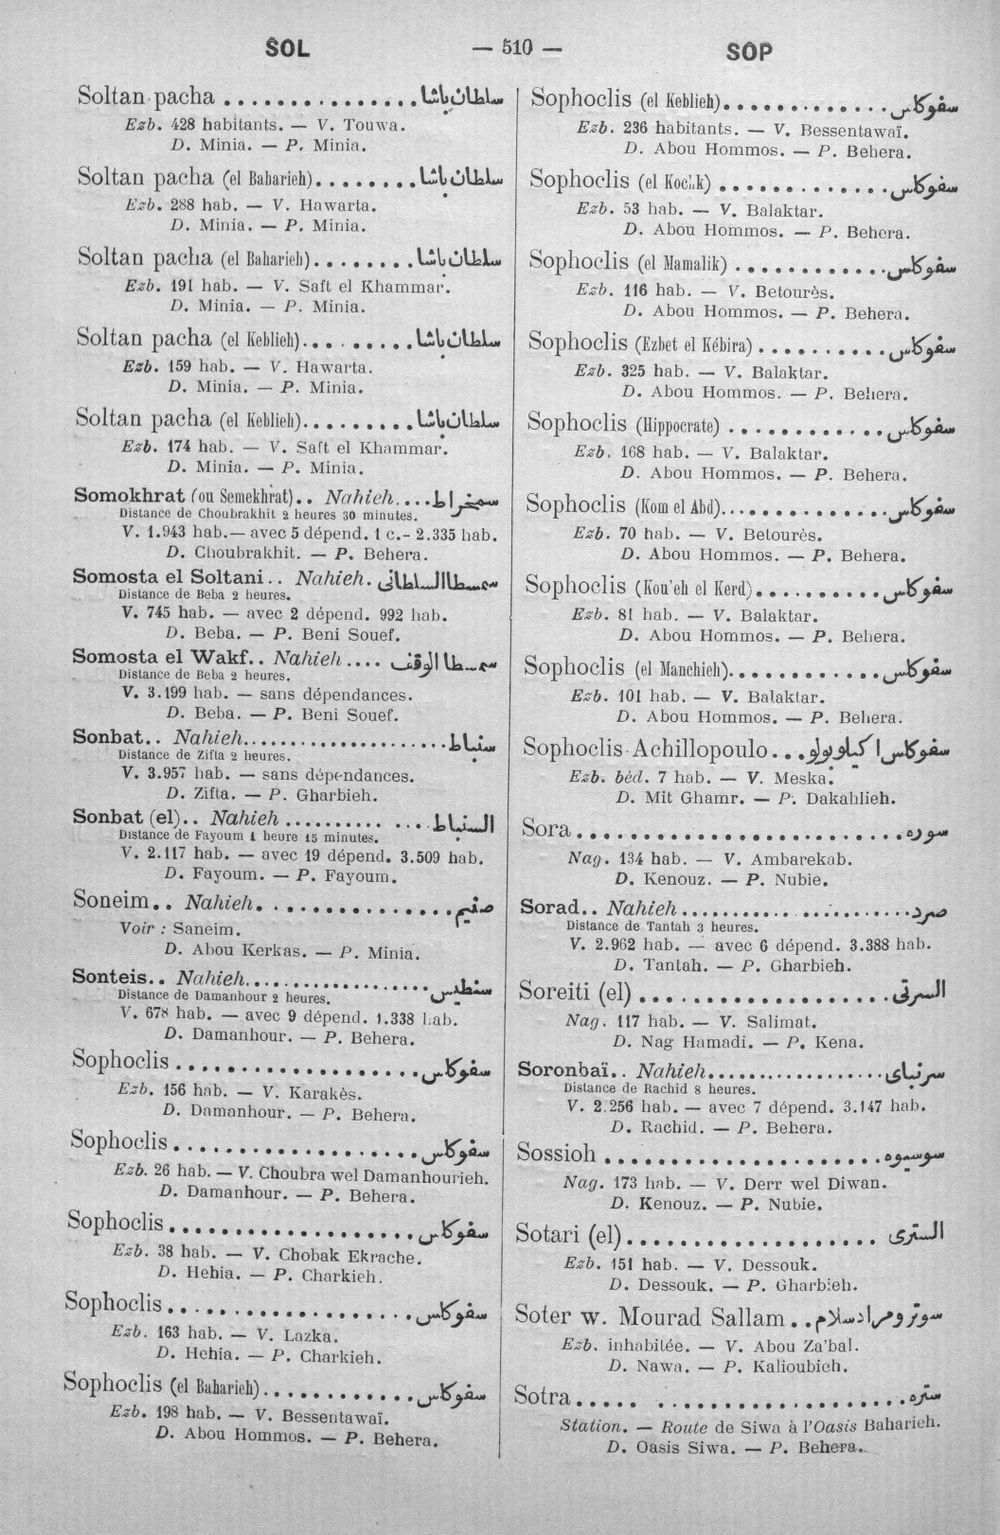 SOL
— 510 —
SOP
Soltan pacha ................ سلطان باشا
Ezb. 428 habitants. — V. Touwa.
D. Minia. — P. Minia.
Soltan pacha (el Baharieh)........ سلطان باشا
Ezb. 288 hab. — V. Hawarta.
D. Minia. — P. Minia.
Soltan pacha (el Baharieh)........ سلطان باشا
Ezb. 191 hab. — V. Saft el Khammar.
D. Minia. — P. Minia.
Soltan pacha (el Keblieh)......... سلطان باشا
Ezb. 159 hab. — V. Hawarta.
D. Minia. — P. Minia.
Soltan pacha (el Keblieh)......... سلطان باشا
Ezb. 174 hab. — V. Saft el Khammar.
D. Minia. — P. Minia.
Somokhrat (ou Semekhrat).. Nahieh.... سمخراط
Distance de Choubrakhit 2 heures 30 minutes.
V. 1.943 hab. — avec 5 dépend. 1 c.- 2.335 hab.
D. Choubrakhit. — P. Behera.
Somosta el Soltani.. Nahieh. سمسطا السلطانى
Distance de Beba 2 heures.
V. 745 hab. — avec 2 dépend. 992 hab.
D. Beba. — P. Beni Souef.
Somosta el Wakf.. Nahieh .... سمسطا الوقف
Distance de Beba 2 heures.
V. 3.199 hab. — sans dépendances.
D. Beba. — P. Beni Souef.
Sonbat.. Nahieh.................... سنباط
Distance de Zifta 2 heures.
V. 3.957 hab. — sans dépendances.
D. Zifta. — P. Gharbieh.
Sonbat (el).. Nahieh .......... ... السنباط
Distance de Fayoum 1 heure 15 minutes.
V. 2.117 hab. — avec 19 dépend. 3.509 hab.
D. Fayoum. — P. Fayoum.
Soneim.. Nahieh................ صنيم
Voir : Saneim.
D. Abou Kerkas. — P. Minia.
Sonteis.. Nahieh.................. سنطيس
Distance de Damanhour 2 heures.
V. 678 hab. — avec 9 dépend. 1.338 hab.
D. Damanhour. — P. Behera.
Sophoclis ................... سفوكاس
Ezb. 156 hab. — V. Karakès.
D. Damanhour. — P. Behera.
Sophoclis................... سفوكاس
Ezb. 26 hab. — V. Choubra wel Damanhourieh.
D. Damanhour. — P. Behera.
Sophoclis................... سفوكاس
Ezb. 38 hab. — V. Chobak Ekrache.
D. Hehia. — P. Charkieh.
Sophoclis................... سفوكاس
Ezb. 163 hab. — V. Lazka.
D. Hehia. — P. Charkieh.
Sophoclis (el Baharieh)............ سفوكاس
Ezb. 198 hab. — V. Bessentawaï.
D. Abou Hommos. — P. Behera.
Sophoclis (el Keblieh)............. سفوكاس
Ezb. 236 habitants. — V. Bessentawaï.
D. Abou Hommos. — P. Behera.
Sophoclis (el Kochk) ............. سفوكاس
Ezb. 53 hab. — V. Balaktar.
D. Abou Hommos. — P. Behera.
Sophoclis (el Mamalik) ............ سفوكاس
Ezb. 116 hab. — V. Betourès.
D. Abou Hommos. — P. Behera.
Sophoclis (Ezbet el Kébira) .......... سفوكاس
Ezb. 325 hab. — V. Balaktar.
D. Abou Hommos. — P. Behera.
Sophoclis (Hippocrate) ............ سفوكاس
Ezb. 168 hab. — V. Balaktar.
D. Abou Hommos. — P. Behera.
Sophoclis (Kom el Abd)............. سفوكاس
Ezb. 70 hab. — V. Betourès.
D. Abou Hommos. — P. Behera.
Sophoclis (Kou'eh el Kerd).......... سفوكاس
Ezb. 81 hab. — V. Balaktar.
D. Abou Hommos. — P. Behera.
Sophoclis (el Manchieh)............ سفوكاس
Ezb. 101 hab. — V. Balaktar.
D. Abou Hommos. — P. Behera.
Sophoclis Achillopoulo... سفوكاس اكيلوبولو
Ezb. béd. 7 hab. — V. Meska.
D. Mit Ghamr. — P. Dakahlieh.
Sora......................... سوره
Nag. 134 hab. — V. Ambarekab.
D. Kenouz. — P. Nubie.
Sorad.. Nahieh ....................... صرد
Distance de Tantah 3 heures.
V. 2.962 hab. — avec 6 dépend. 3.388 hab.
D. Tantah. — P. Gharbieh.
Soreiti (el) ................... السرتى
Nag. 117 hab. — V. Salimat.
D. Nag Hamadi. — P. Kena.
Soronbaï.. Nahieh.................. سرنباى
Distance de Rachid 8 heures.
V. 2.256 hab. — avec 7 dépend. 3.147 hab.
D. Rachid. — P. Behera.
Sossioh ..................... سوسيوه
Nag. 173 hab. — V. Derr wel Diwan.
D. Kenouz. — P. Nubie.
Sotari (el)................... السترى
Ezb. 151 hab. — V. Dessouk.
D. Dessouk. — P. Gharbieh.
Soter w. Mourad Sallam.. سوتر ومراد سلام
Ezb. inhabitée. — V. Abou Za'bal.
D. Nawa. — P. Kalioubieh.
Sotra..... ................... ستره
Station. — Route de Siwa à l'Oasis Baharieh.
D. Oasis Siwa. — P. Behera.